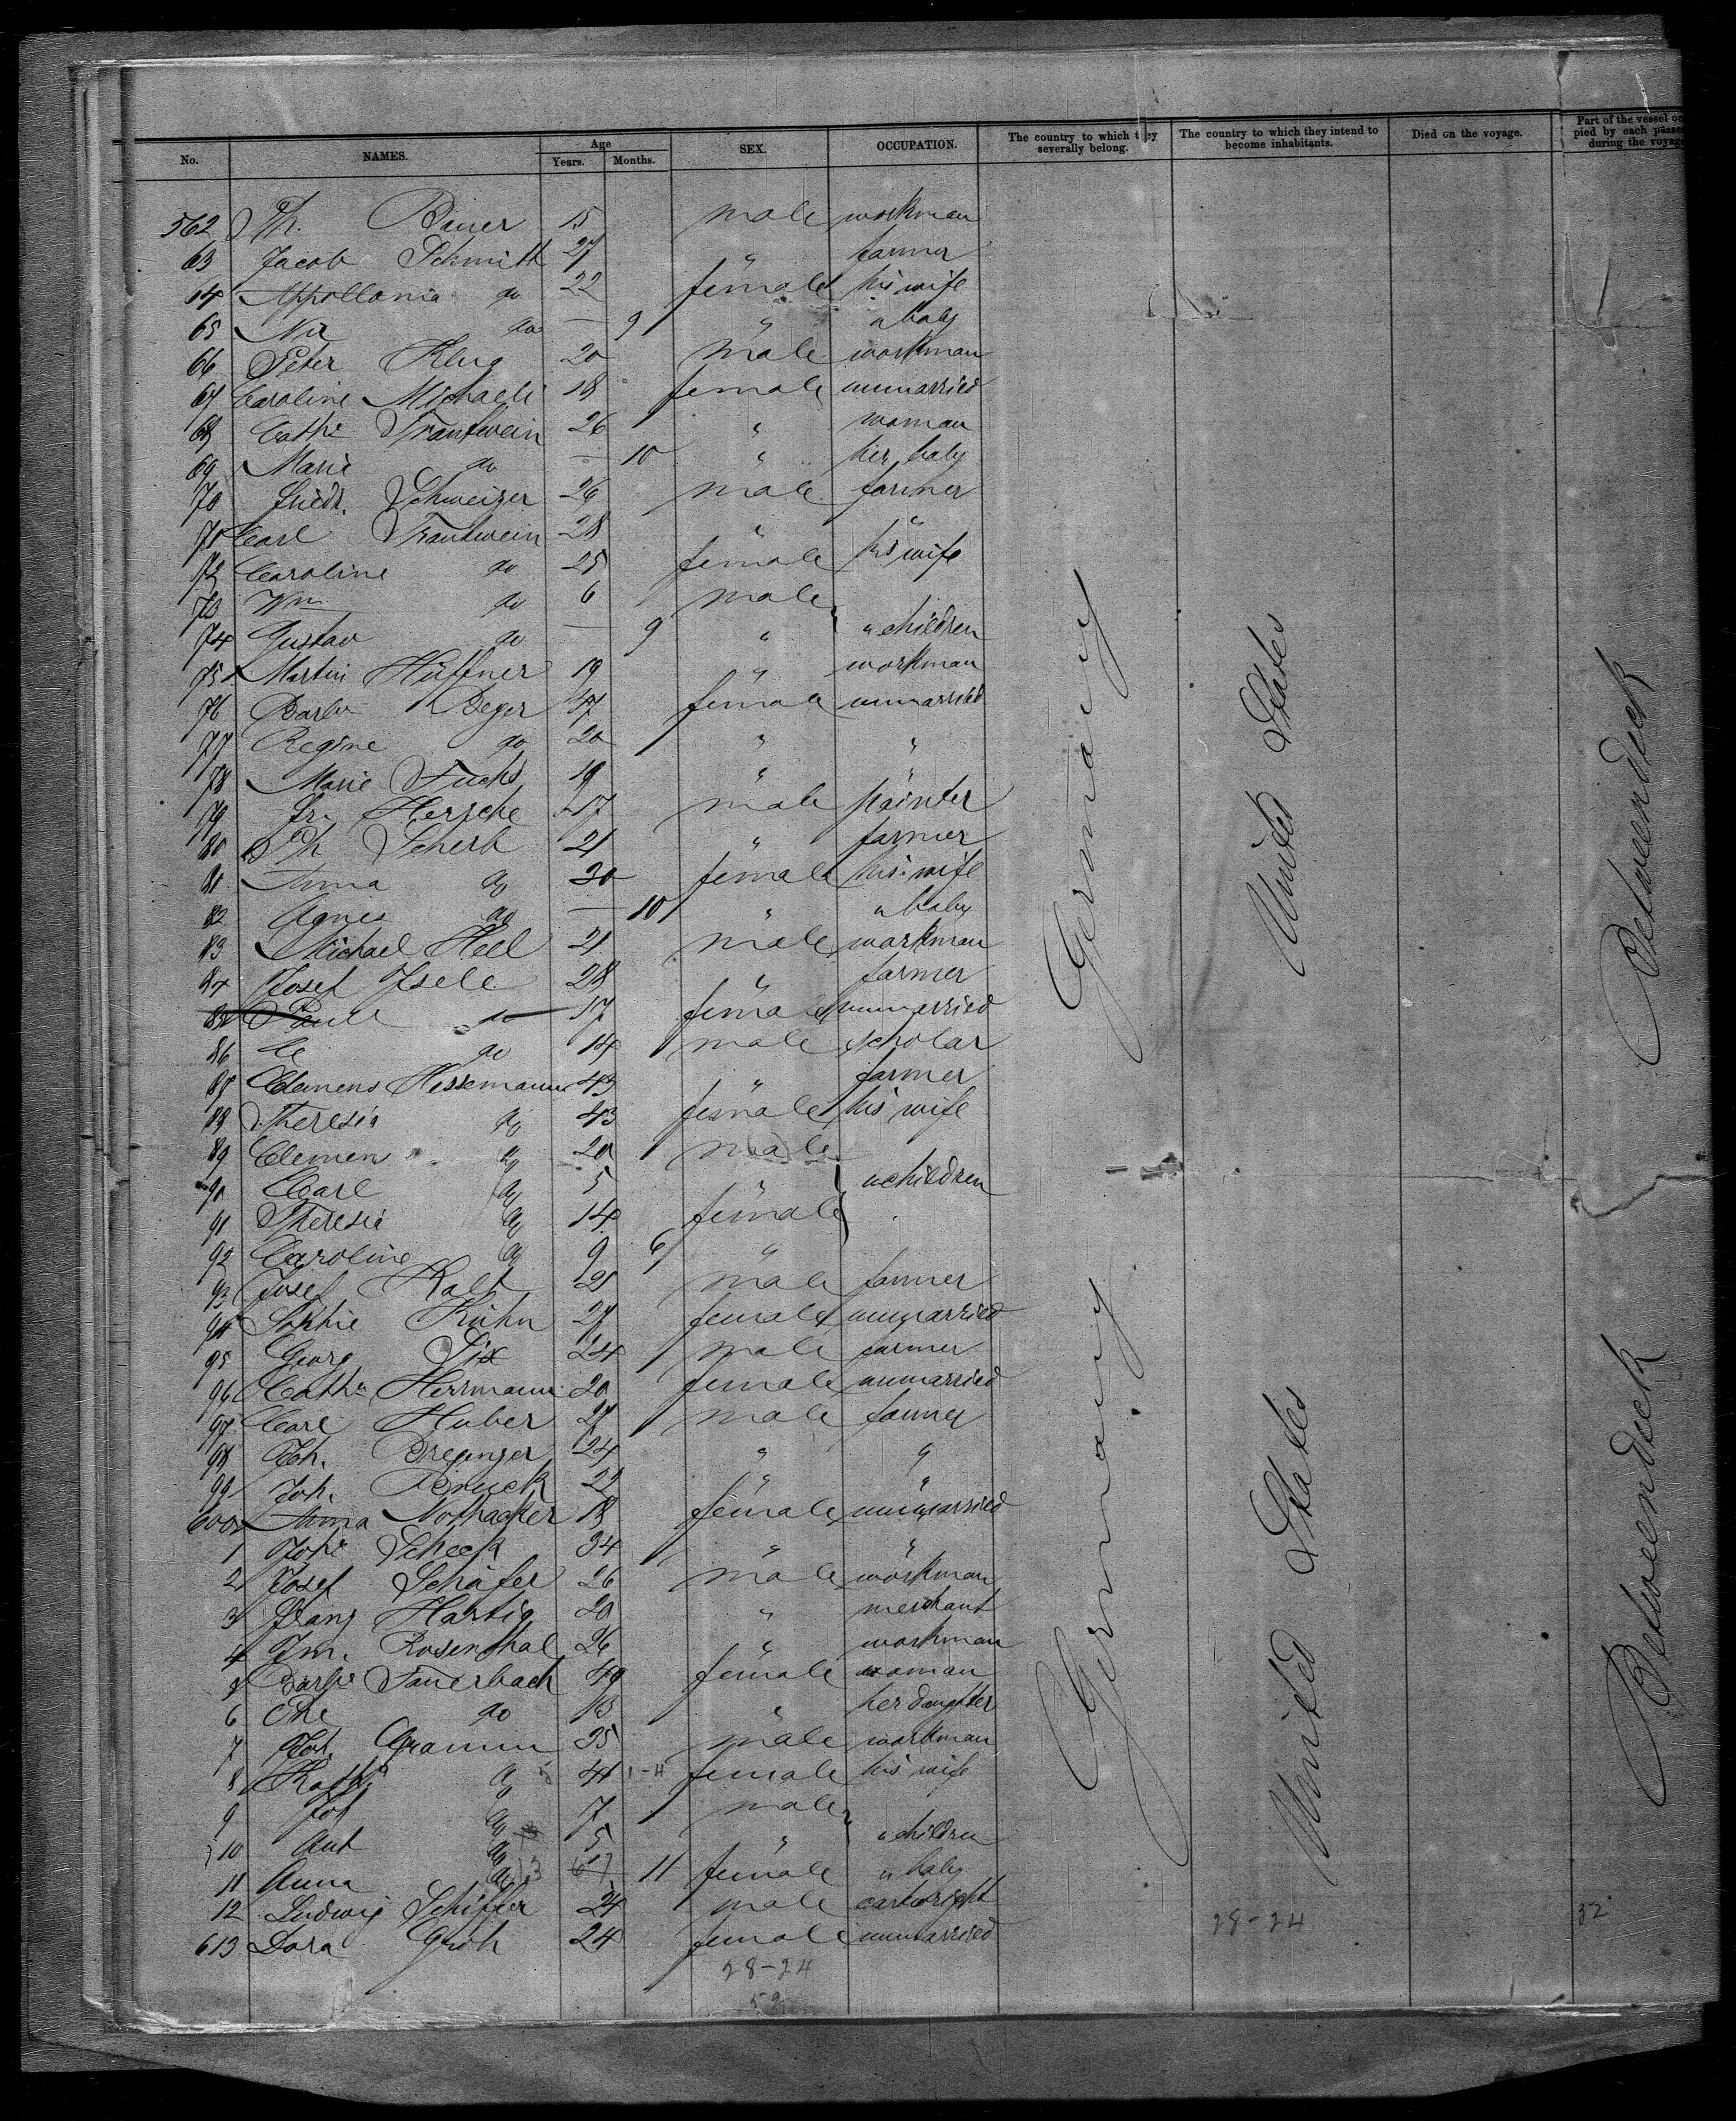 No. NAMES. Age Years. Months. SEX. OCCUPATION. The country to which they severally belong. The country to which they intend to become inhabitants. Died on the voyage. Part of the vessel oc pied by each passe during the voyag
562 Ph. Bauer 15 male workman
63 Jacob Schmitt 27 " farmer
64 Appollonia do 22 female his wife
65 do — 9 " " baby
66 Peter Klug 20 male workman
67 Caroline Michaeli 18 female unmarried
68 Cathe Trautwein 26 " woman
69 Marie do — 10 " her baby
70 Friedr. Schweizer 26 male farmer
71 Carl Trautwein 28 " "
72 Caroline do 25 female his wife
73 Wm do 6 male
74 Gustav do — 9 " " children
75 Martin Hüffner 19 " workman
76 Barbe Beyer 47 female unmarried
77 Regine do 20 " "
78 Marie Fuchs 19 " "
79 Fr. Hersche 27 male painter
80 Ph Scherb 21 " farmer
81 Anna do 20 female his wife
82 Agnes do — 10 " " baby
83 Michael Heel 21 male workman
84 Josef Isele 28 " farmer
85 Paul do 17 female unmarried
86 do 14 male scholar
87 Clemens Hessemann 43 " farmer
88 Theresia do 43 female his wife
89 Clemen do 20 male
90 Carl do 5 " " children
91 Theresia do 14 female
92 Caroline do 9 6 "
93 Josef Kalt 21 male farmer
94 Sophie Kühn 27 female unmarried
95 Georg Six 24 male farmer
96 Cathe Herrmann 20 female unmarried
97 Carl Huber 27 male farmer
98 Joh. Breginzer 24 " "
99 Joh. 22 " "
600 Anna Nothacker 18 female unmarried
1 Joh. Scheck 34 " "
2 Josef Schäfer 26 male workman
3 Franz Hartig 20 " merchant
4 Im. Rosenthal 26 " workman
5 Barbe Fauerbach 49 female woman
6 do 13 " her daughter
7 Joh. Gramm 35 male workman
8 do 4 1-4 female his wife
9 Jos do 7 male
10 Ant do 5 " " children
11 Anna do 11 female " baby
12 Ludwig Schiffler 24 male cartwright
613 Dora Groh 24 female unmarried
Germany United States Betweendeck
Germany United States Betweendeck
28-24 28-24 32
52